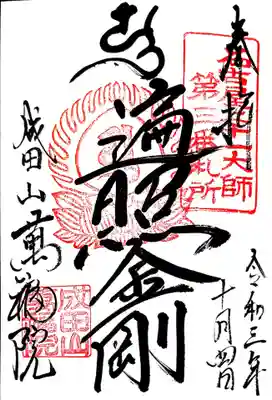 奉拝
大師
第三番札所
令和三年
十月四日
遍照金剛
成田山萬福院
成田山